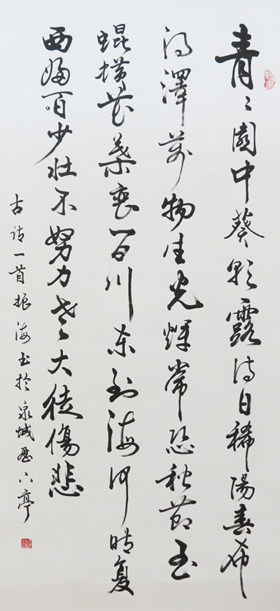 青〻園中葵朝露待日稀陽春布
德澤萬物生光輝常恐秋節至
焜横花葉衰百川東到海何時復
西歸百少壮不努力老大徒傷悲
古诗一首振海书於泉城歷下亭